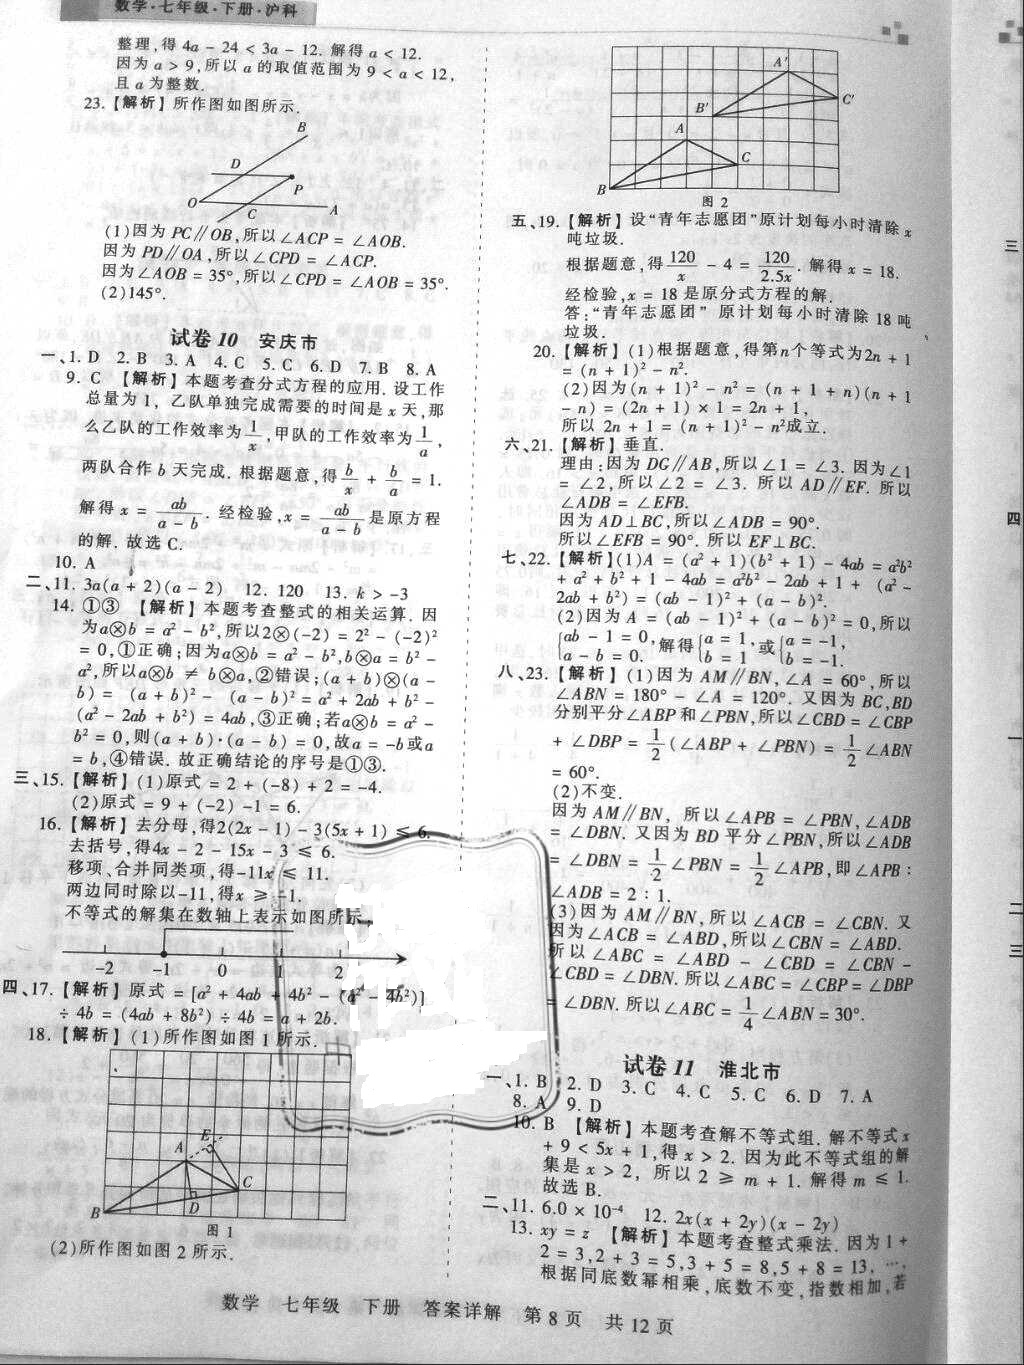 数学·七年级·下册·沪科
整理,得4a-24<3a-12. 解得a<12.
因为a>9,所以a的取值范围为9<a<12,
且a为整数.
23.【解析】所作图如图所示.
B
D
P
O
C
A
(1)因为PC∥OB,所以∠ACP=∠AOB.
因为PD∥OA,所以∠CPD=∠ACP.
因为∠AOB=35°,所以∠CPD=∠AOB=35°.
(2)145°.
试卷10 安庆市
一、1. D 2. B 3. A 4. C 5. C 6. D 7. B 8. A
9. C 【解析】本题考查分式方程的应用. 设工作
总量为1, 乙队单独完成需要的时间是x天,那
么乙队的工作效率为1/x,甲队的工作效率为1/a,
两队合作b天完成. 根据题意,得b/x+b/a=1.
解得x=ab/(a-b). 经检验,x=ab/(a-b)是原方程
的解. 故选C.
10. A
二、11. 3a(a+2)(a-2) 12. 120 13. k>-3
14. ①③ 【解析】本题考查整式的相关运算. 因
为a⊗b=a²-b²,所以2⊗(-2)=2²-(-2)²
=0,①正确;因为a⊗b=a²-b²,b⊗a=b²-
a²,所以a⊗b≠b⊗a,②错误;(a+b)⊗(a-
b)=(a+b)²-(a-b)²=a²+2ab+b²-
(a²-2ab+b²)=4ab,③正确;若a⊗b=a²-
b²=0,则(a+b)·(a-b)=0,故a=-b或a
=b,④错误. 故正确结论的序号是①③.
三、15.【解析】(1)原式=2+(-8)+2=-4.
(2)原式=9+(-2)-1=6.
16.【解析】去分母,得2(2x-1)-3(5x+1)≤6.
去括号,得4x-2-15x-3≤6.
移项、合并同类项,得-11x≤11.
两边同时除以-11,得x≥-1.
不等式的解集在数轴上表示如图所示,
-2 -1 0 1 2
四、17.【解析】原式=[a²+4ab+4b²-(a²-4b²)]
÷4b=(4ab+8b²)÷4b=a+2b.
18.【解析】(1)所作图如图1所示.
A
E
C
B
D
图1
(2)所作图如图2所示.
A′
C′
B′
A
C
B
图2
五、19.【解析】设“青年志愿团”原计划每小时清除x
吨垃圾.
根据题意,得120/x-4=120/2.5x. 解得x=18.
经检验,x=18是原分式方程的解.
答:“青年志愿团”原计划每小时清除18吨
垃圾.
20.【解析】(1)根据题意,得第n个等式为2n+1
=(n+1)²-n².
(2)因为(n+1)²-n²=(n+1+n)(n+1
-n)=(2n+1)×1=2n+1,
所以2n+1=(n+1)²-n²成立.
六、21.【解析】垂直.
理由:因为DG∥AB,所以∠1=∠3. 因为∠1
=∠2,所以∠2=∠3. 所以AD∥EF. 所以
∠ADB=∠EFB.
因为AD⊥BC,所以∠ADB=90°.
所以∠EFB=90°. 所以EF⊥BC.
七、22.【解析】(1)A=(a²+1)(b²+1)-4ab=a²b²
+a²+b²+1-4ab=a²b²-2ab+1+(a²-
2ab+b²)=(ab-1)²+(a-b)².
(2)因为A=(ab-1)²+(a-b)²=0,所以
{ab-1=0, a-b=0. 解得{a=1, b=1 或{a=-1, b=-1.
八、23.【解析】(1)因为AM∥BN,∠A=60°,所以
∠ABN=180°-∠A=120°. 又因为BC,BD
分别平分∠ABP和∠PBN,所以∠CBD=∠CBP
+∠DBP=1/2(∠ABP+∠PBN)=1/2∠ABN
=60°.
(2)不变.
因为AM∥BN, 所以∠APB=∠PBN,∠ADB
=∠DBN. 又因为BD平分∠PBN,所以∠ADB
=∠DBN=1/2∠PBN=1/2∠APB,即∠APB:
∠ADB=2:1.
(3)因为AM∥BN,所以∠ACB=∠CBN. 又
因为∠ACB=∠ABD,所以∠CBN=∠ABD.
所以∠ABC=∠ABD-∠CBD=∠CBN-
∠CBD=∠DBN. 所以∠ABC=∠CBP=∠DBP
=∠DBN. 所以∠ABC=1/4∠ABN=30°.
试卷11 淮北市
一、1. B 2. D 3. C 4. C 5. C 6. D 7. A
8. A 9. D
10. B 【解析】本题考查解不等式组. 解不等式x
+9<5x+1,得x>2. 因为此不等式组的解
集是x>2, 所以2≥m+1. 解得m≤1.
故选B.
二、11. 6.0×10⁻⁴ 12. 2x(x+2y)(x-2y)
13. xy=z 【解析】本题考查整式乘法. 因为1+
2=3,2+3=5,3+5=8,5+8=13, …,
根据同底数幂相乘,底数不变,指数相加,若
数学 七年级 下册 答案详解 第8页 共12页
三
四
一
二
三